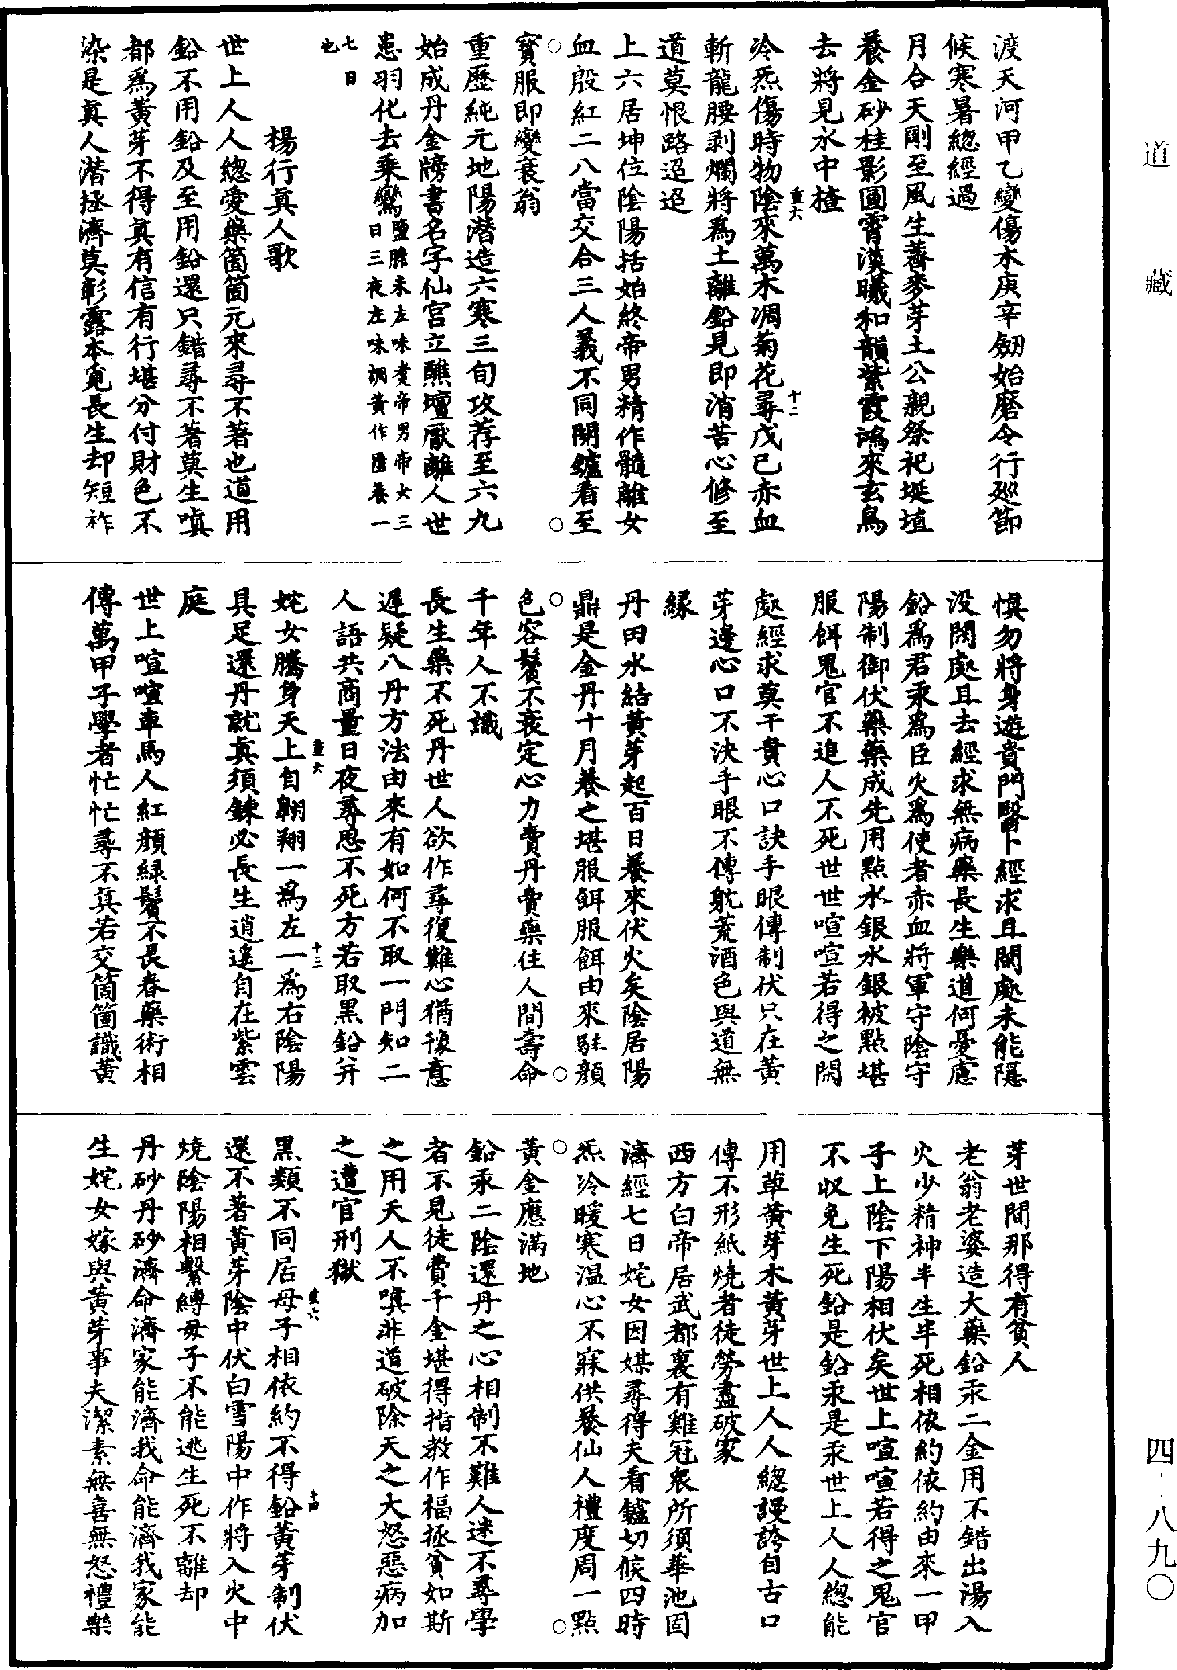 道藏
渡天河甲乙變傷木庚辛劒始磨令行廵節
候寒暑緫經過
月合天剛至風生蕎麥芽土公親祭祀埏埴
養金砂桂影圓霄漢曦和韻紫霞鴻來玄鳥
去將見水中楂
冷炁傷時物陰來萬木凋菊花尋戊己赤血
斬龍腰剥爛將爲土離鉛見即消苦心修至
道莫恨路迢迢
上六居坤位陰陽括始終帝男精作髓離女
血殷紅二八當交合三人義不同開鑪看至
寳服即變衰翁
重歷純元地陽潛造六寒三旬攻荐至六九
始成丹金牓書名字仙宫立醮壇厭離人世
患羽化去乘鸞
鹽膽朱左味煑帝男帝女三
日三夜左味調黄作匱養一
七日
也
楊行真人歌
世上人人總愛藥箇箇元來尋不著也道用
鉛不用鉛及至用鉛還只錯尋不著莫生嗔
都爲黄芽不得真有信有行堪分付財色不
染是真人潜拯濟莫彰露本覓長生却短祚
慎勿將身遊貴門醫卜經求且鬧處未能隱
没閙處且去經求無病藥長生樂道何憂慮
鉛爲君汞爲臣火爲使者赤血將軍守陰守
陽制御伏藥藥成先用點水銀水銀被點堪
服餌鬼官不追人不死世世喧喧若得之閑
處經求莫干貴心口訣手眼傳制伏只在黄
芽邊心口不決手眼不傳躭荒酒色與道無
緣
丹田水結黄芽起百日養來伏火矣陰居陽
鼎是金丹十月養之堪服餌服餌由來駐顔
色容鬢不衰定心力費丹費藥住人間壽命
千年人不識
長生藥不死丹世人欲作尋復難心猶穅意
遲疑八丹方法由來有如何不取一門知二
人語共商量日夜尋思不死方若取黑鉛并
姹女騰身天上自翱翔一爲左一爲右陰陽
具足還丹就真須鍊必長生逍遥自在紫雲
庭
世上喧喧車馬人紅顔緑鬢不長春藥術相
傳萬甲子學者忙忙尋不真若交箇箇識黄
芽世間那得有貧人
老翁老婆造大藥鉛汞二金用不錯出湯入
火少精神半生半死相依約依約由來一甲
子上陰下陽相伏矣世上喧喧若得之鬼官
不收免生死鉛是鉛汞是汞世上人人緫能
用草黄芽木黄芽世上人人緫謾誇自古口
傳不形紙燒者徒勞盡破家
西方白帝居武都裏有雞冠衆所須華池固
濟經七日姹女因媒尋得夫看鑪切候四時
炁冷暖寒温心不寐供養仙人禮度周一點
黄金應滿地
鉛汞二陰還丹之心相制不難人迷不尋學
者不見徒費千金堪得指教作福拯貧如斯
之用天人不嗔非道破除天之大怒惡病加
之遭官刑獄
黑類不同居母子相依約不得鉛黄芽制伏
還不著黄芽陰中伏白雪陽中作將入火中
燒陰陽相繫縛母子不能逃生死不離却
丹砂丹砂濟命濟家能濟我命能濟我家能
生姹女嫁與黄芽事夫潔素無喜無怒禮樂
四－八九〇